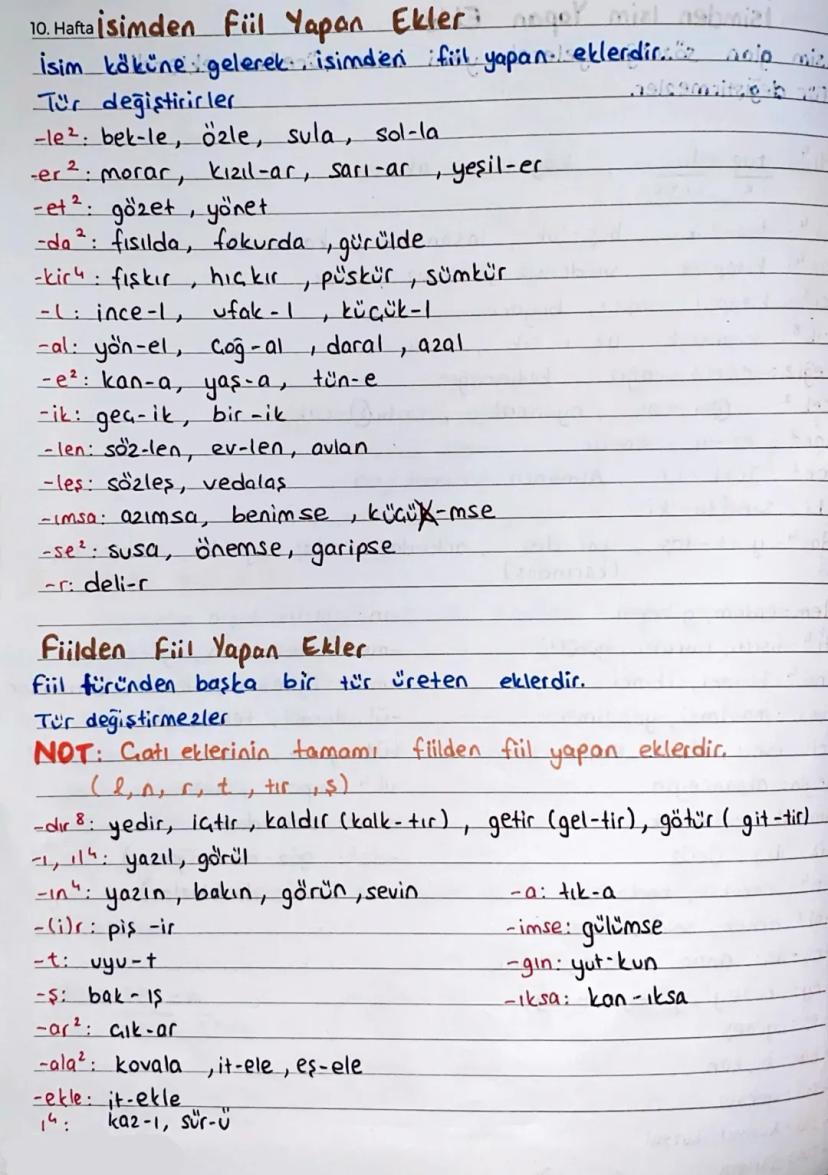 10. Hafta İsimden Fiil Yapan Ekler
İsim köküne gelerek isimden fiil yapan eklerdir.
Tür değiştirirler
-le²: bek-le, özle, sula, sol-la
-er²: morar, kızıl-ar, sarı-ar, yeşil-er
-et²: gözet, yönet
-da²: fısılda, fokurda, gürülde
-kir⁴: fışkır, hıçkır, püskür, sümkür
-l: ince-l, ufak-l, küçük-l
-al: yön-el, çoğ-al, daral, azal
-e²: kan-a, yaş-a, tün-e
-ik: geç-ik, bir-ik
-len: söz-len, ev-len, avlan
-leş: sözleş, vedalaş
-ımsa: azımsa, benimse, küçük-mse
-se²: susa, önemse, garipse
-r: deli-r
Fiilden Fiil Yapan Ekler
Fiil türünden başka bir tür üreten eklerdir.
Tür değiştirmezler
NOT: Çatı eklerinin tamamı fiilden fiil yapan eklerdir.
(l, n, r, t, tır, ş)
-dır⁸: yedir, içtir, kaldır (kalk-tır), getir (gel-tir), götür (git-tir)
-ı, ıl⁴: yazıl, görül
-ın⁴: yazın, bakın, görün, sevin -a: tık-a
-(i)r: piş-ir -imse: gülümse
-t: uyu-t -gın: yut-kun
-ş: bak-ış -ıksa: kan-ıksa
-ar²: çık-ar
-ala²: kovala, it-ele, eş-ele
-ekle: it-ekle
ı⁴: kaz-ı, sür-ü